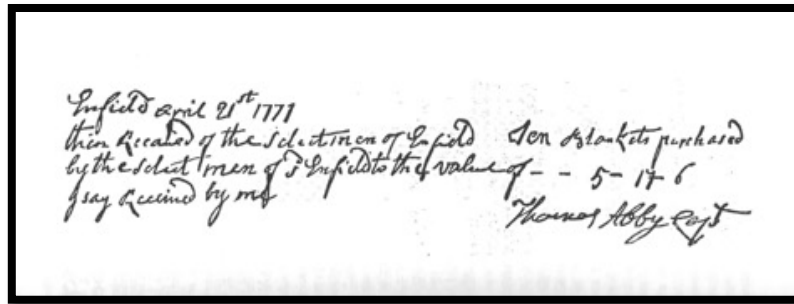 Enfield April 21st 1777
then Receaied of the Select men of Enfield Ten Blankets purchased
by the select men of sd Enfield to the value of - - 5 - 17 - 6
I say Received by me
Thomas Abby Capt